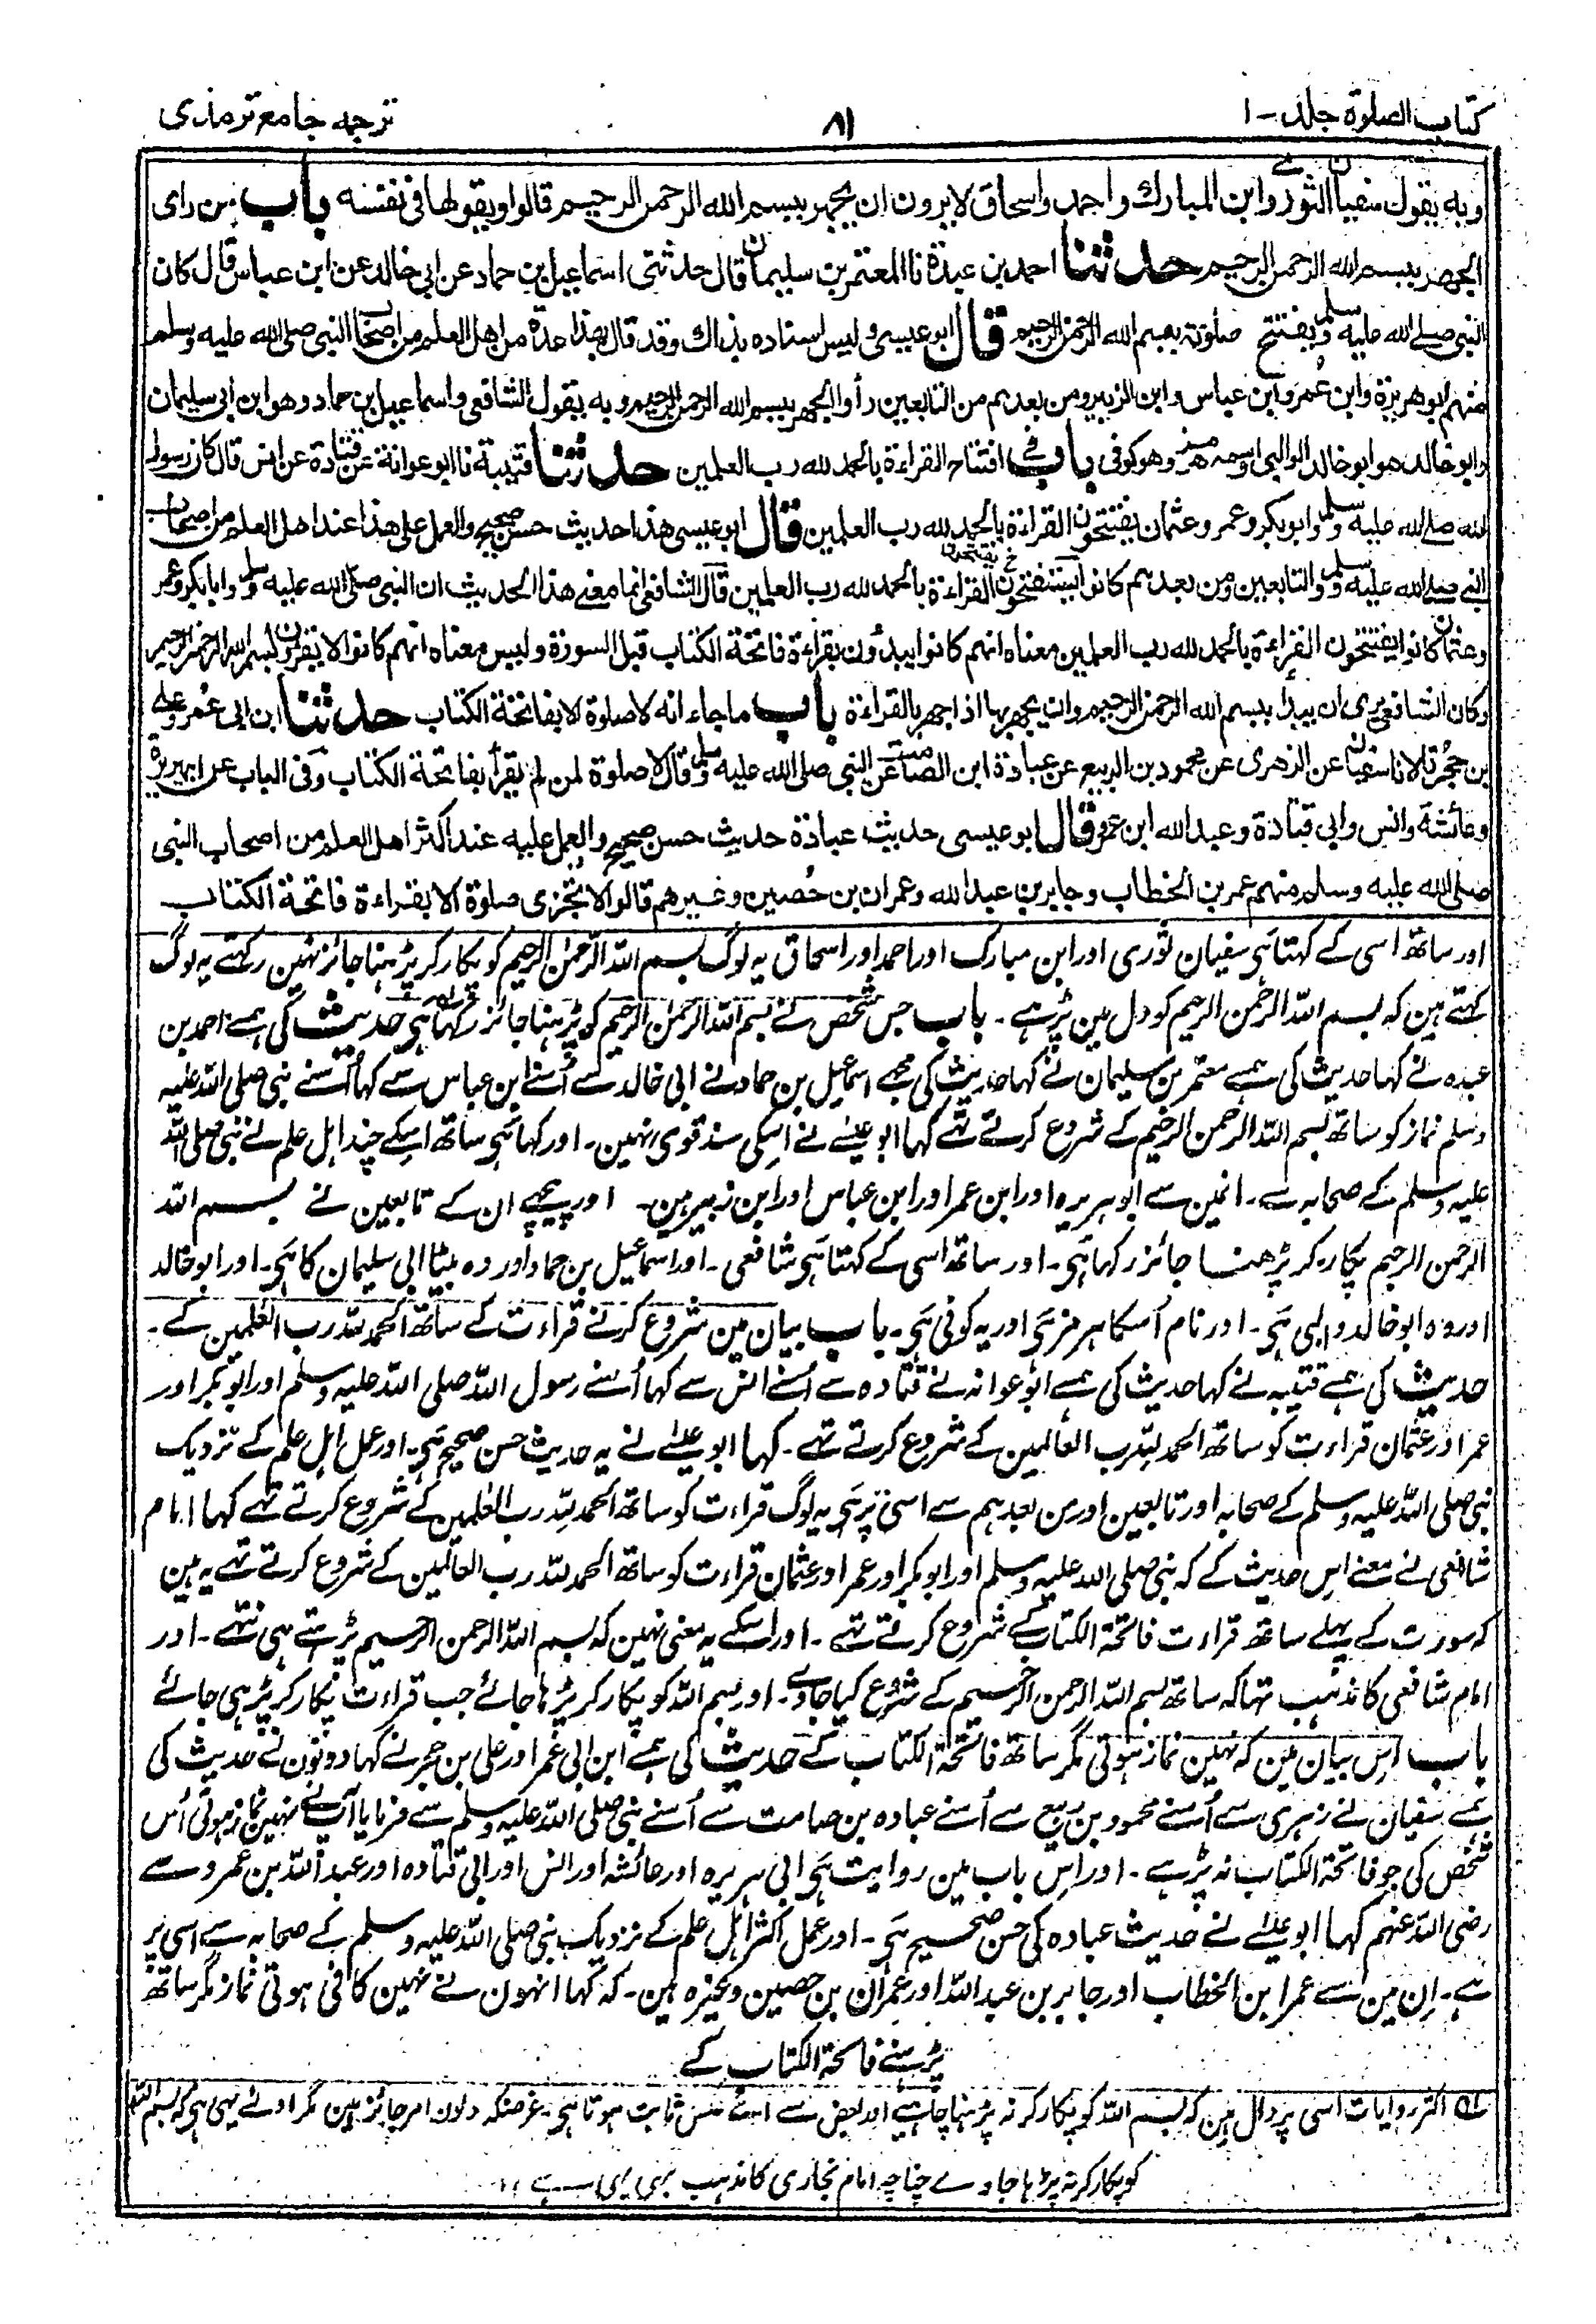 کتاب الصلوة جلد - ۱
۸۱
ترجمه جامع ترمذی
وبه یقول سفیان الثوری وابن المبارك واحمد واسحاق لا یرون ان یجهر ببسم الله الرحمن الرحیم قالوا ویقولها فی نفسه باب من رای
الجهر ببسم الله الرحمن الرحیم حدثنا احمد بن عبدة نا المعتمر بن سلیمان قال حدثنی اسماعیل بن حماد عن ابی خالد عن ابن عباس قال کان
النبی صلی الله علیه وسلم یفتتح صلوته ببسم الله الرحمن الرحیم قال ابو عیسی ولیس اسناده بذاك وقد قال بهذا عدة من اهل العلم من اصحاب النبی صلی الله علیه وسلم
منهم ابو هریرة وابن عمر وابن عباس وابن الزبیر ومن بعدهم من التابعین رأوا الجهر ببسم الله الرحمن الرحیم وبه یقول الشافعی واسماعیل بن حماد وهو ابن ابی سلیمان
وابو خالد هو ابو خالد الوالبی اسمه هرمز وهو کوفی باب فی افتتاح القراءة بالحمد لله رب العلمین حدثنا قتیبة نا ابو عوانة عن قتادة عن انس قال کان رسول
الله صلی الله علیه وسلم وابو بکر وعمر وعثمان یفتتحون القراءة بالحمد لله رب العلمین قال ابو عیسی هذا حدیث حسن صحیح والعمل علی هذا عند اهل العلم من اصحاب
النبی صلی الله علیه وسلم والتابعین ومن بعدهم کانوا یستفتحون القراءة بالحمد لله رب العلمین قال الشافعی انما معنی هذا الحدیث ان النبی صلی الله علیه وسلم وابا بکر وعمر
وعثمان کانوا یفتتحون القراءة بالحمد لله رب العلمین معناه انهم کانوا یبدؤن بقراءة فاتحة الکتاب قبل السورة ولیس معناه انهم کانوا لا یقرؤن بسم الله الرحمن الرحیم
وکان الشافعی یری ان یبدأ ببسم الله الرحمن الرحیم وان یجهر بها اذا جهر بالقراءة باب ما جاء انه لا صلوة الا بفاتحة الکتاب حدثنا ابن ابی عمر وعلی
بن حجر قالا نا سفیان عن الزهری عن محمود بن الربیع عن عبادة ابن الصامت عن النبی صلی الله علیه وسلم قال لا صلوة لمن لم یقرأ بفاتحة الکتاب وفی الباب عن ابی هریرة
وعائشة وانس وابی قتادة وعبد الله ابن عمرو قال ابو عیسی حدیث عبادة حدیث حسن صحیح والعمل علیه عند اکثر اهل العلم من اصحاب النبی
صلی الله علیه وسلم منهم عمر بن الخطاب وجابر بن عبد الله وعمران بن حصین وغیرهم قالوا لا تجزی صلوة الا بقراءة فاتحة الکتاب
اور ساتھ اسی کے کہتا ہی سفیان ثوری اور ابن مبارک اور احمد اور اسحاق یہ لوگ بسم اللہ الرحمن الرحیم کو پکار کر پڑہنا جائز نہین رکہتے یہ لوگ
کہتے ہین کہ بسم اللہ الرحمن الرحیم کو دل مین پڑہے ۔ باب جس شخص نے بسم اللہ الرحمن الرحیم کو پڑہنا جائز رکہا ہی حدیث کی ہمسے احمد بن
عبدہ نے کہا حدیث کی ہمسے معتمر بن سلیمان نے کہا حدیث کی مجھے اسماعیل بن حماد نے ابی خالد سے اُسنے ابن عباس سے کہا اُسنے نبی صلی اللہ علیہ
وسلم نماز کو ساتھ بسم اللہ الرحمن الرحیم کے شروع کرتے تہے کہا ابو عیسے نے اسکی سند قوی نہین ۔ اور کہا ہی ساتھ اسکے چند اہل علم نے نبی صلی اللہ
علیہ وسلم کے صحابہ سے ۔ انمین سے ابو ہریرہ اور ابن عمر اور ابن عباس اور ابن زبیر ہین ۔ اور پیچہے ان کے تابعین نے بسم اللہ
الرحمن الرحیم پکار کر پڑھنا جائز رکہا ہی ۔ اور ساتھ اسی کے کہتا ہی شافعی ۔ اور اسماعیل بن حماد اور وہ بیٹا ابی سلیمان کا ہی ۔ اور ابو خالد
اور وہ ابو خالد والبی ہی ۔ اور نام اُسکا ہرمز ہی اور یہ کوفی ہی ۔ باب بیان مین شروع کرنے قراءت کے ساتھ الحمد للہ رب العلمین کے ۔
حدیث کی ہمسے قتیبہ نے کہا حدیث کی ہمسے ابو عوانہ نے قتادہ سے اُسنے انس سے کہا اُسنے رسول اللہ صلی اللہ علیہ وسلم اور ابو بکر اور
عمر اور عثمان قراءت کو ساتھ الحمد للہ رب العالمین کے شروع کرتے تہے ۔ کہا ابو عیسے نے یہ حدیث حسن صحیح ہی ۔ اور عمل اہل علم کے نزدیک
نبی صلی اللہ علیہ وسلم کے صحابہ اور تابعین اور من بعدہم سے اسی پر ہی یہ لوگ قراءت کو ساتھ الحمد للہ رب العلمین کے شروع کرتے تہے کہا امام
شافعی نے معنے اس حدیث کے کہ نبی صلی اللہ علیہ وسلم اور ابو بکر اور عمر اور عثمان قراءت کو ساتھ الحمد للہ رب العالمین کے شروع کرتے تہے یہ ہین
کہ سورت کے پہلے ساتھ قراءت فاتحۃ الکتاب کے شروع کرتے تہے ۔ اور اسکے یہ معنی نہین کہ بسم اللہ الرحمن الرحیم پڑہتے ہی نتہے ۔ اور
امام شافعی کا مذہب تہا کہ ساتھ بسم اللہ الرحمن الرحیم کے شروع کیا جاوے ۔ اور بسم اللہ کو پکار کر پڑہا جائے جب قراءت پکار کر پڑہی جائے
باب اس بیان مین کہ نہین نماز ہوتی مگر ساتھ فاتحۃ الکتاب کے حدیث کی ہمسے ابن ابی عمر اور علی بن حجر نے کہا دونون نے حدیث کی
ہمسے سفیان نے زہری سے اُسنے محمود بن ربیع سے اُسنے عبادہ بن صامت سے اُسنے نبی صلی اللہ علیہ وسلم سے فرمایا آپ نے نہین نماز ہوتی اُس
شخص کی جو فاتحۃ الکتاب نہ پڑہے ۔ اور اس باب مین روایت ہی ابی ہریرہ اور عائشہ اور انس اور ابی قتادہ اور عبد اللہ بن عمرو سے
رضی اللہ عنہم کہا ابو عیسے نے حدیث عبادہ کی حسن صحیح ہی ۔ اور عمل اکثر اہل علم کے نزدیک نبی صلی اللہ علیہ وسلم کے صحابہ سے اسی پر
ہے ۔ ان مین سے عمر ابن الخطاب اور جابر بن عبد اللہ اور عمران بن حصین وغیرہ ہین ۔ کہ کہا انہون نے نہین کافی ہوتی نماز مگر ساتھ
پڑہنے فاتحۃ الکتاب کے
اکثر روایات اسی پر دال ہین کہ بسم اللہ کو پکار کر نہ پڑہنا چاہئے اور بعض سے ثابت ہوتا ہی ۔ غرضکہ دونون امر جائز ہین مگر اولے یہی ہی کہ بسم اللہ
کو پکار کر نہ پڑہا جاوے چناچہ امام بخاری کا مذہب بہی یہی ہے ۱۲